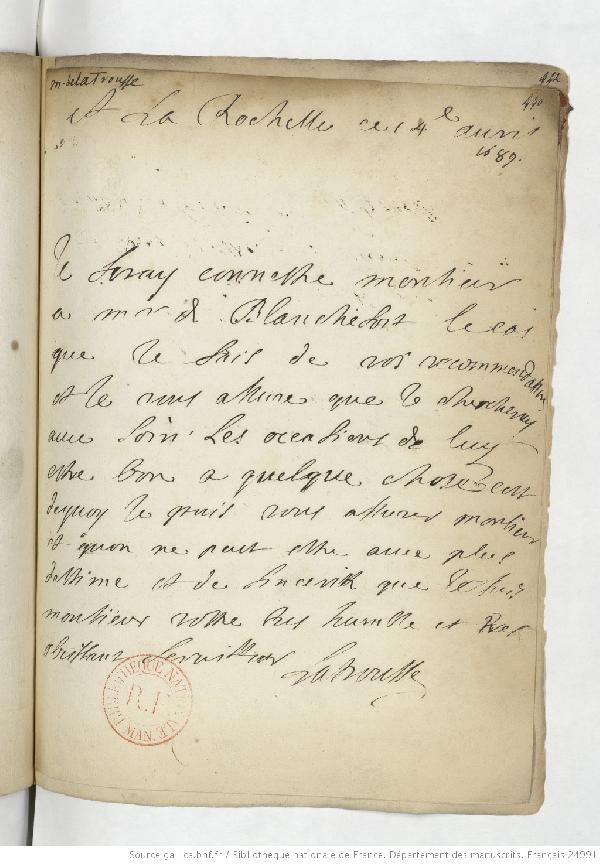 m. de la Trousse
442
440
A La Rochelle ce 14e auril
1689.
Je feray connestre monsieur
a mr de Blanchefort le cas
que je fais de vos recommendations
et je vous assure que je chercheray
auec soin les occasions de luy
estre bon a quelque chose cest
dequoy je puis vous assurer monsieur
et quon ne peut estre auec plus
destime et de sincerite que je suis
monsieur vostre tres humble et tres
obeissant seruiteur
Latrousse
BIBLIOTHEQUE NATIONALE MAN.
R.F.
Source gallica.bnf.fr / Bibliothèque nationale de France. Département des manuscrits. Français 24991